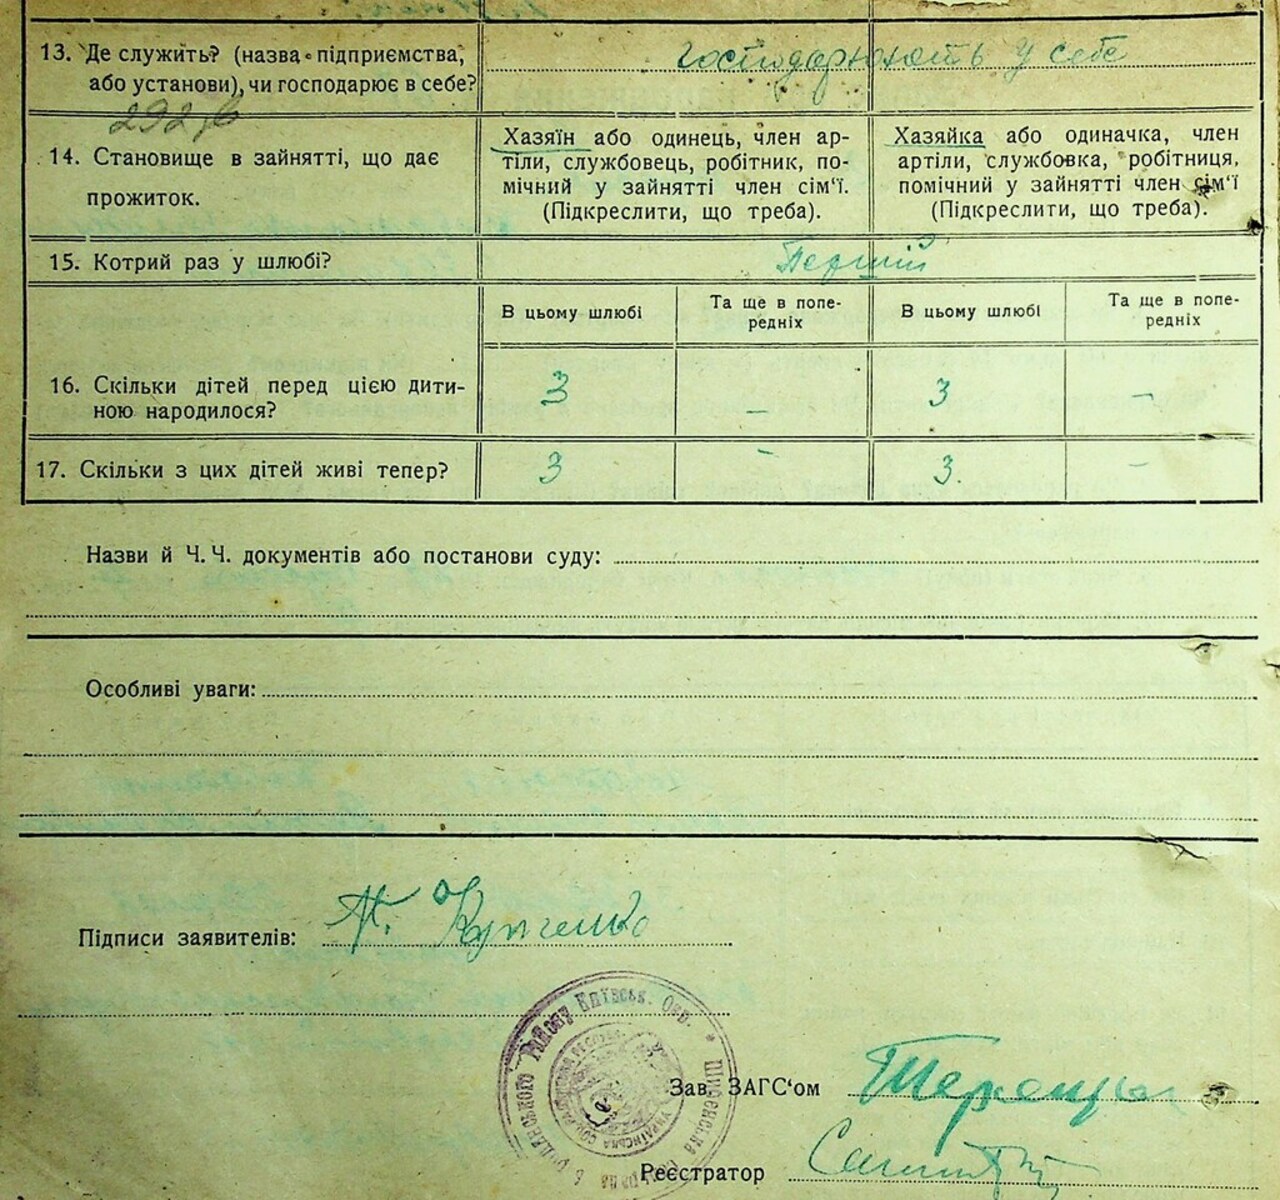 13. Де служить? (назва підприємства, господарюють у себе
або установи), чи господарює в себе?
292
14. Становище в зайнятті, що дає
прожиток.
Хазяїн або одинець, член ар-
тіли, службовець, робітник, по-
мічний у зайнятті член сім'ї.
(Підкреслити, що треба).
Хазяйка або одиначка, член
артіли, службовка, робітниця,
помічний у зайнятті член сім'ї
(Підкреслити, що треба).
15. Котрий раз у шлюбі? Перший
В цьому шлюбі
Та ще в попе-
редніх
В цьому шлюбі
Та ще в попе-
редніх
16. Скільки дітей перед цією дити- 3 – 3 –
ною народилося?
17. Скільки з цих дітей живі тепер? 3 – 3. –
Назви й Ч. Ч. документів або постанови суду:
Особливі уваги:
Підписи заявителів:
Зав. ЗАГС'ом
Реєстратор
району Київськ. Окр.